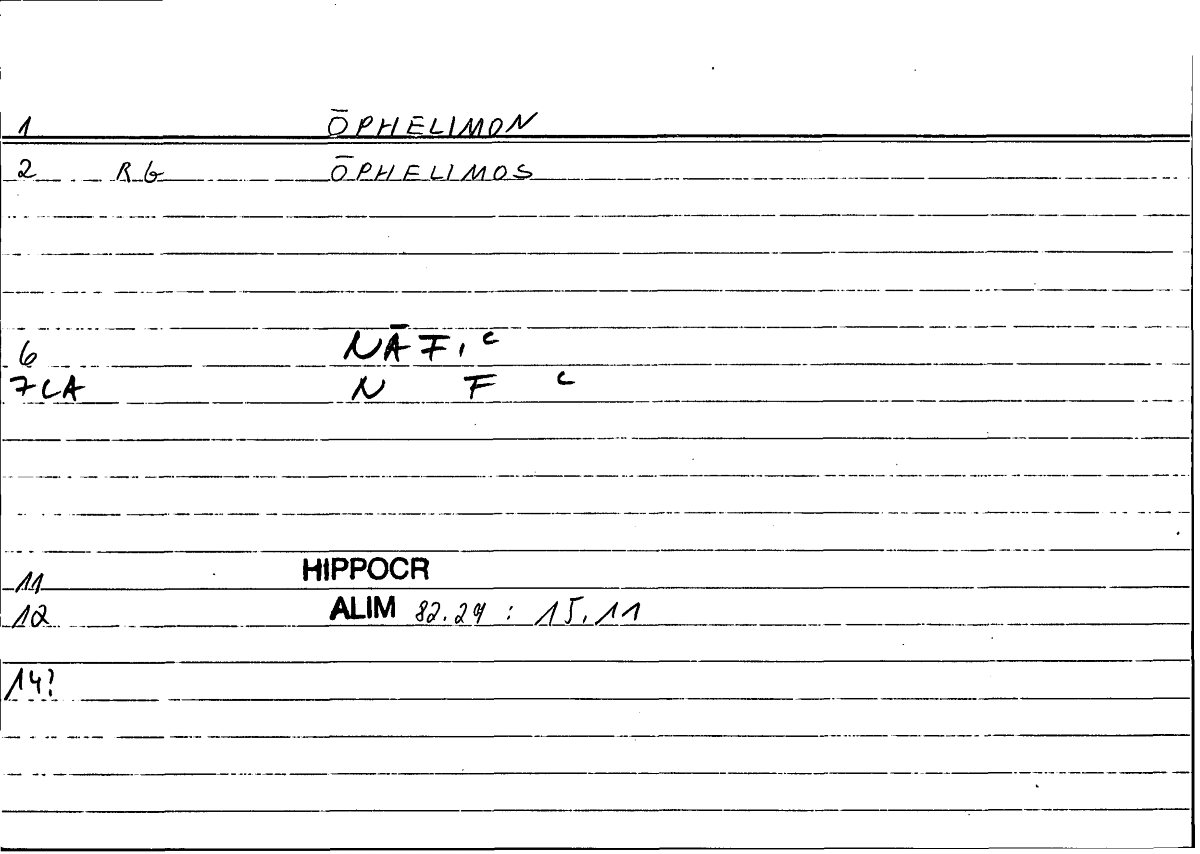 1 ŌPHELIMON
2 RG ŌPHELIMOS
6 NĀFIʿ
7CA N F ʿ
11 HIPPOCR
12 ALIM 82.29 : 15.11
14?